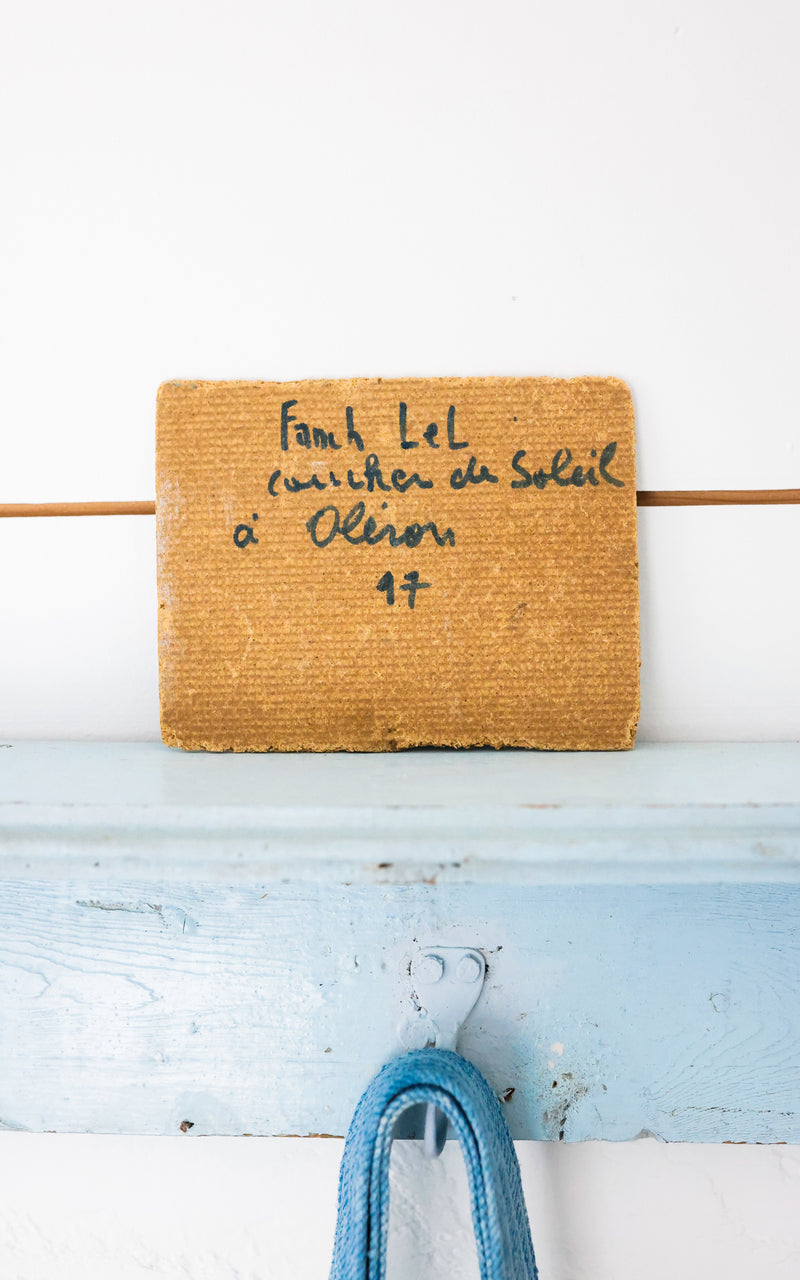 Fanch LeL
coucher de Soleil
à Oléron
17